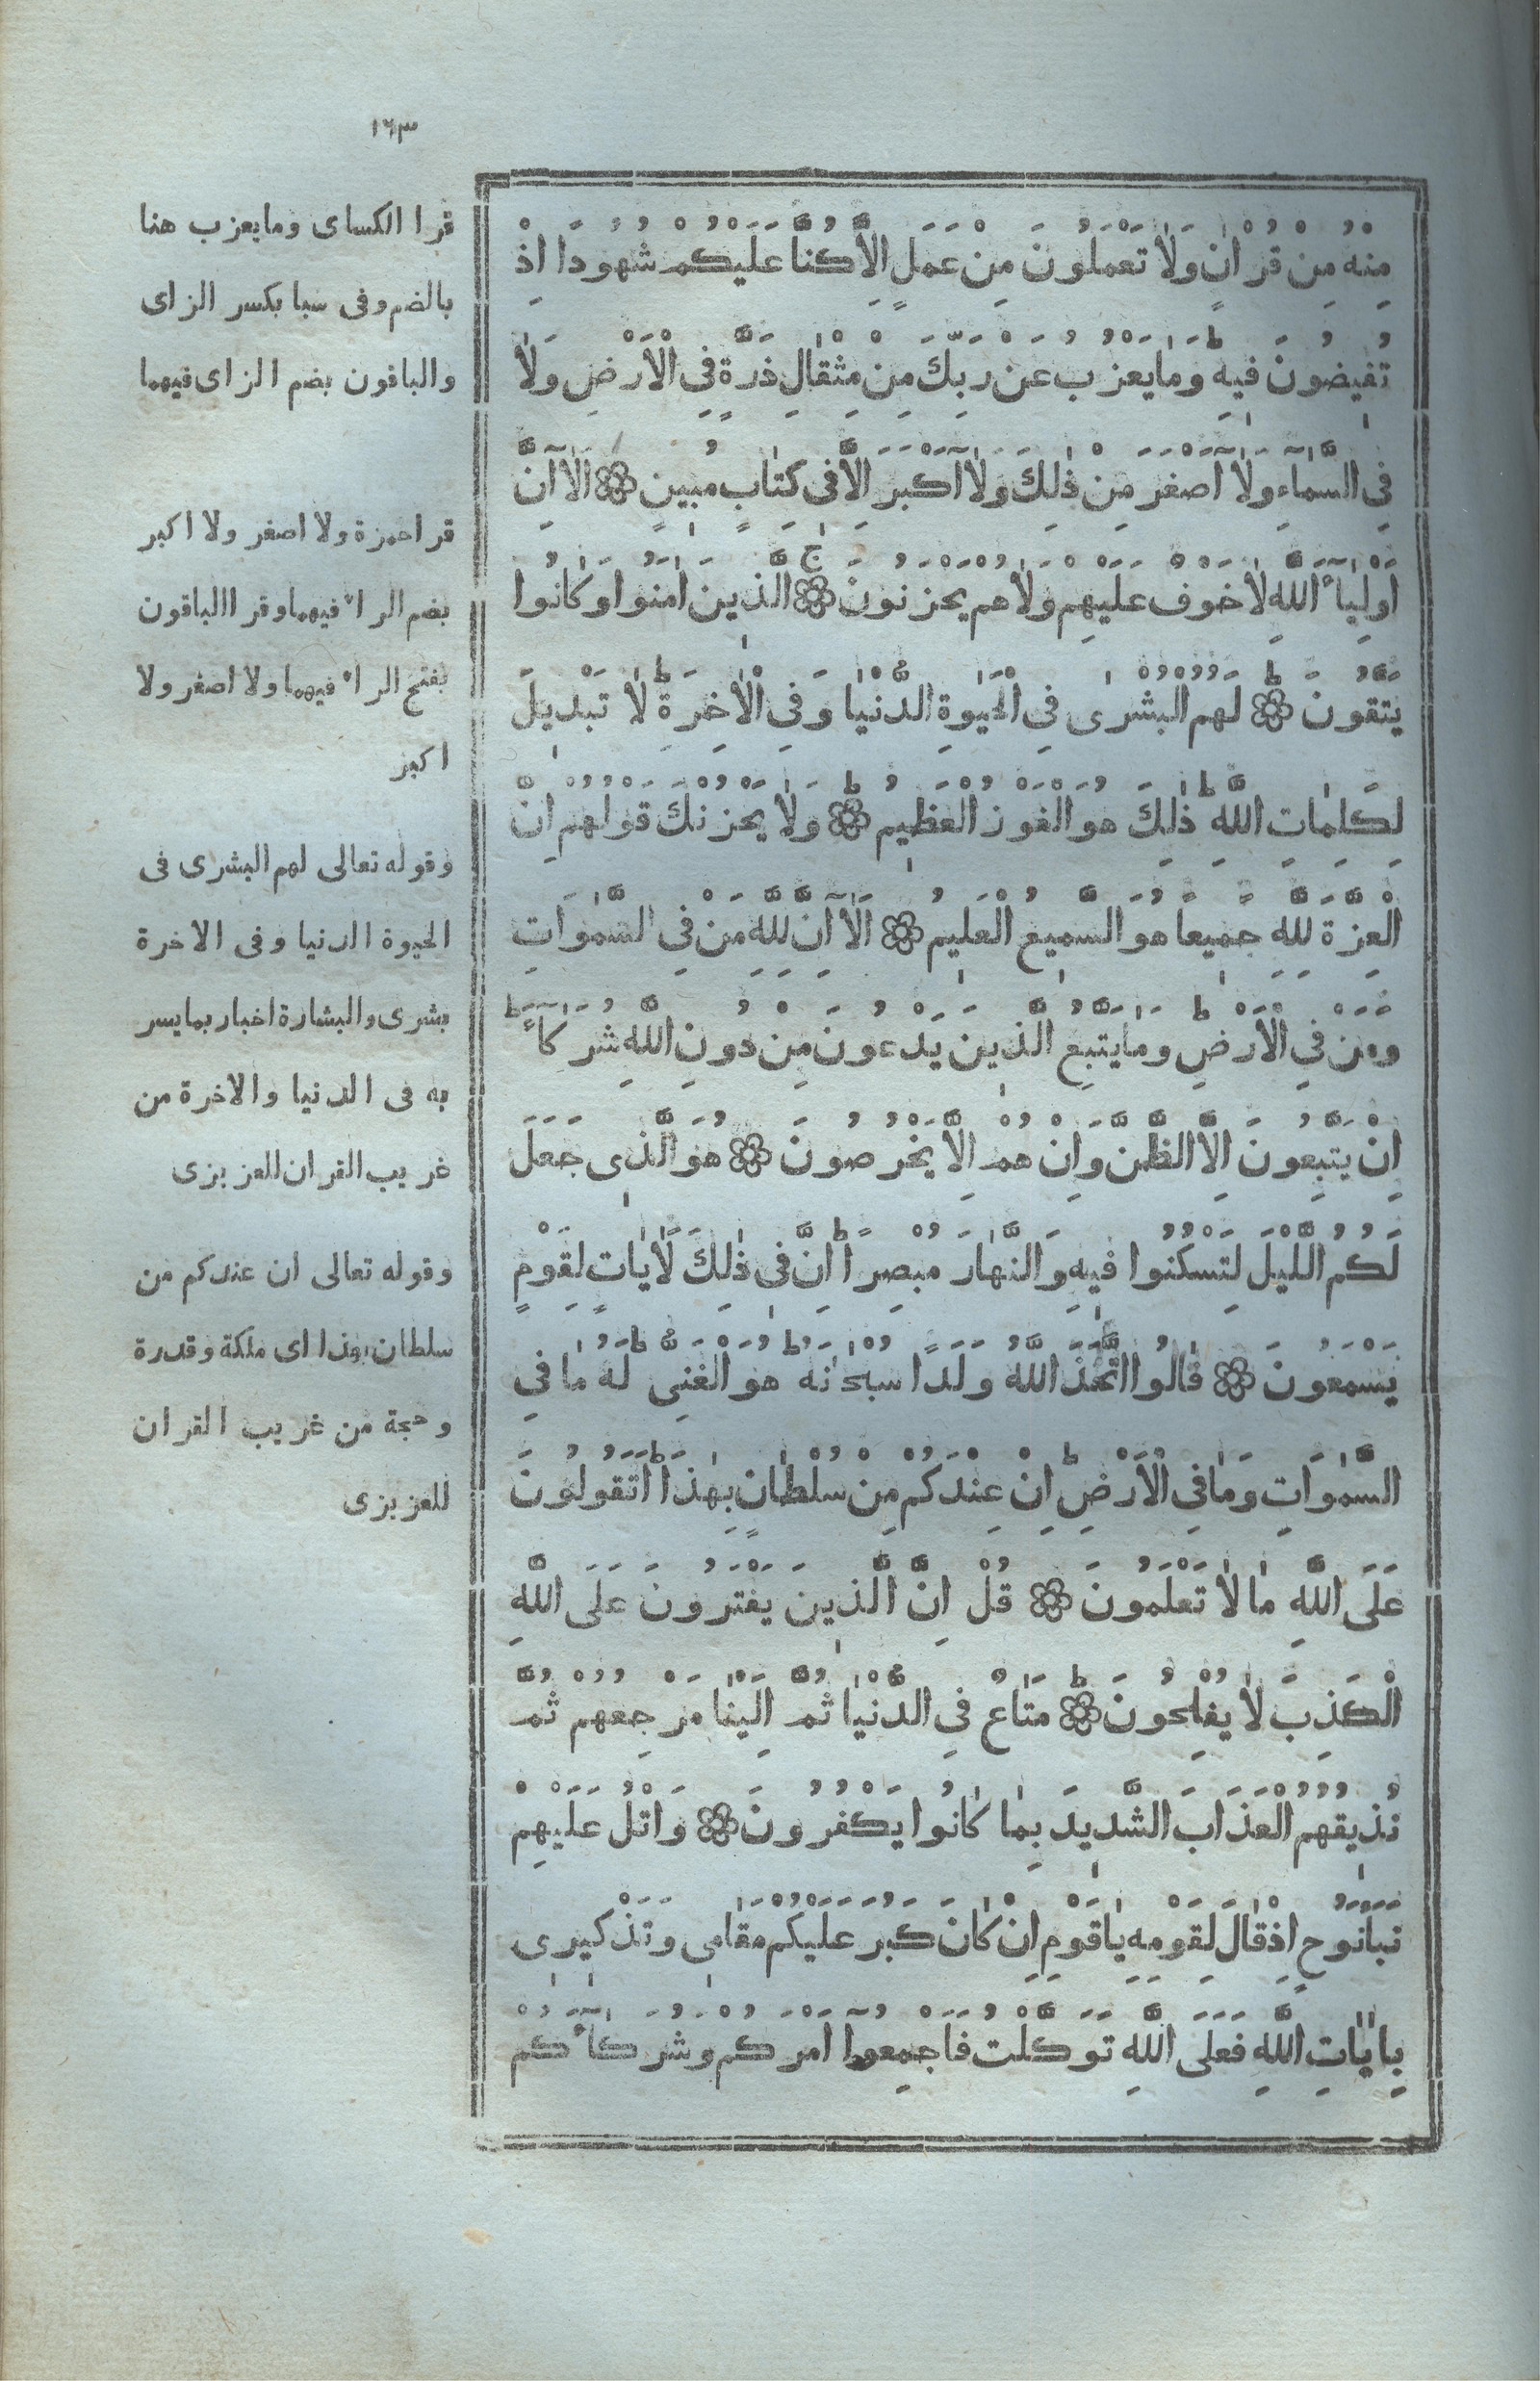 ١٦٣
مِنْهُ مِنْ قُرْاٰنٍ وَلَا تَعْمَلُونَ مِنْ عَمَلٍ اِلَّا كُنَّا عَلَيْكُمْ شُهُودًا اِذْ
تُفِيضُونَ فِيهِ ط وَمَا يَعْزُبُ عَنْ رَبِّكَ مِنْ مِثْقَالِ ذَرَّةٍ فِى الْاَرْضِ وَلَا
فِى السَّمَآءِ وَلَآ اَصْغَرَ مِنْ ذٰلِكَ وَلَآ اَكْبَرَ اِلَّا فِى كِتَابٍ مُبِينٍ ۝ اَلَآ اِنَّ
اَوْلِيَآءَ اللّٰهِ لَا خَوْفٌ عَلَيْهِمْ وَلَا هُمْ يَحْزَنُونَ ج ۝ الَّذِينَ اٰمَنُوا وَكَانُوا
يَتَّقُونَ ط ۝ لَهُمُ الْبُشْرٰى فِى الْحَيٰوةِ الدُّنْيَا وَفِى الْاٰخِرَةِ ط لَا تَبْدِيلَ
لِكَلِمَاتِ اللّٰهِ ط ذٰلِكَ هُوَ الْفَوْزُ الْعَظِيمُ ط ۝ وَلَا يَحْزُنْكَ قَوْلُهُمْ اِنَّ
الْعِزَّةَ لِلّٰهِ جَمِيعًا هُوَ السَّمِيعُ الْعَلِيمُ ۝ اَلَآ اِنَّ لِلّٰهِ مَنْ فِى السَّمٰوَاتِ
وَمَنْ فِى الْاَرْضِ ط وَمَا يَتَّبِعُ الَّذِينَ يَدْعُونَ مِنْ دُونِ اللّٰهِ شُرَكَآءَ ط
اِنْ يَتَّبِعُونَ اِلَّا الظَّنَّ وَاِنْ هُمْ اِلَّا يَخْرُصُونَ ۝ هُوَ الَّذِى جَعَلَ
لَكُمُ اللَّيْلَ لِتَسْكُنُوا فِيهِ وَالنَّهَارَ مُبْصِرًا ط اِنَّ فِى ذٰلِكَ لَاٰيَاتٍ لِقَوْمٍ
يَسْمَعُونَ ۝ قَالُوا اتَّخَذَ اللّٰهُ وَلَدًا سُبْحَانَهُ ط هُوَ الْغَنِىُّ ط لَهُ مَا فِى
السَّمٰوَاتِ وَمَا فِى الْاَرْضِ ط اِنْ عِنْدَكُمْ مِنْ سُلْطَانٍ بِهٰذَا ط اَتَقُولُونَ
عَلَى اللّٰهِ مَا لَا تَعْلَمُونَ ۝ قُلْ اِنَّ الَّذِينَ يَفْتَرُونَ عَلَى اللّٰهِ
الْكَذِبَ لَا يُفْلِحُونَ ط ۝ مَتَاعٌ فِى الدُّنْيَا ثُمَّ اِلَيْنَا مَرْجِعُهُمْ ثُمَّ
نُذِيقُهُمُ الْعَذَابَ الشَّدِيدَ بِمَا كَانُوا يَكْفُرُونَ ۝ وَاتْلُ عَلَيْهِمْ
نَبَاَ نُوحٍ اِذْ قَالَ لِقَوْمِهِ يَا قَوْمِ اِنْ كَانَ كَبُرَ عَلَيْكُمْ مَقَامِى وَتَذْكِيرِى
بِاٰيَاتِ اللّٰهِ فَعَلَى اللّٰهِ تَوَكَّلْتُ فَاَجْمِعُوآ اَمْرَكُمْ وَشُرَكَآءَكُمْ
قرا الكساى وما يعزب هنا
بالضم وفى سبا بكسر الزاى
والباقون بضم الزاى فيهما
قرا حمزة ولا اصغر ولا اكبر
بضم الراء فيهما وقرا الباقون
بفتح الراء فيهما ولا اصغر ولا
اكبر
وقوله تعالى لهم البشرى فى
الحيوة الدنيا وفى الاخرة
بشرى والبشارة اخبار بما يسر
به فى الدنيا والاخرة من
غريب القران للعزيزى
وقوله تعالى ان عندكم من
سلطان بهذا اى ملكة وقدرة
وحجة من غريب القران
للعزيزى